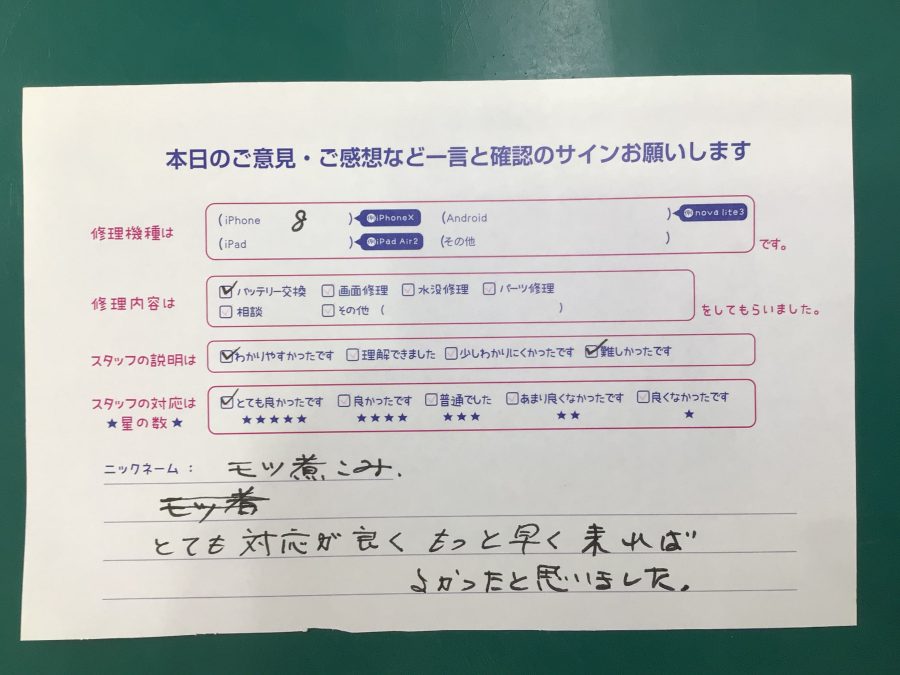 本日のご意見・ご感想など一言と確認のサインお願いします
修理機種は (iPhone 8 ) 例iPhoneX (Android ) 例nova lite3
(iPad ) 例iPad Air2 (その他 ) です。
修理内容は バッテリー交換 画面修理 水没修理 パーツ修理
相談 その他 ( ) をしてもらいました。
スタッフの説明は わかりやすかったです 理解できました 少しわかりにくかったです 難しかったです
スタッフの対応は とても良かったです 良かったです 普通でした あまり良くなかったです 良くなかったです
★星の数★ ★★★★★ ★★★★ ★★★ ★★ ★
ニックネーム： モツ煮こみ.
モツ煮
とても対応が良くもっと早く来れば
よかったと思いました。